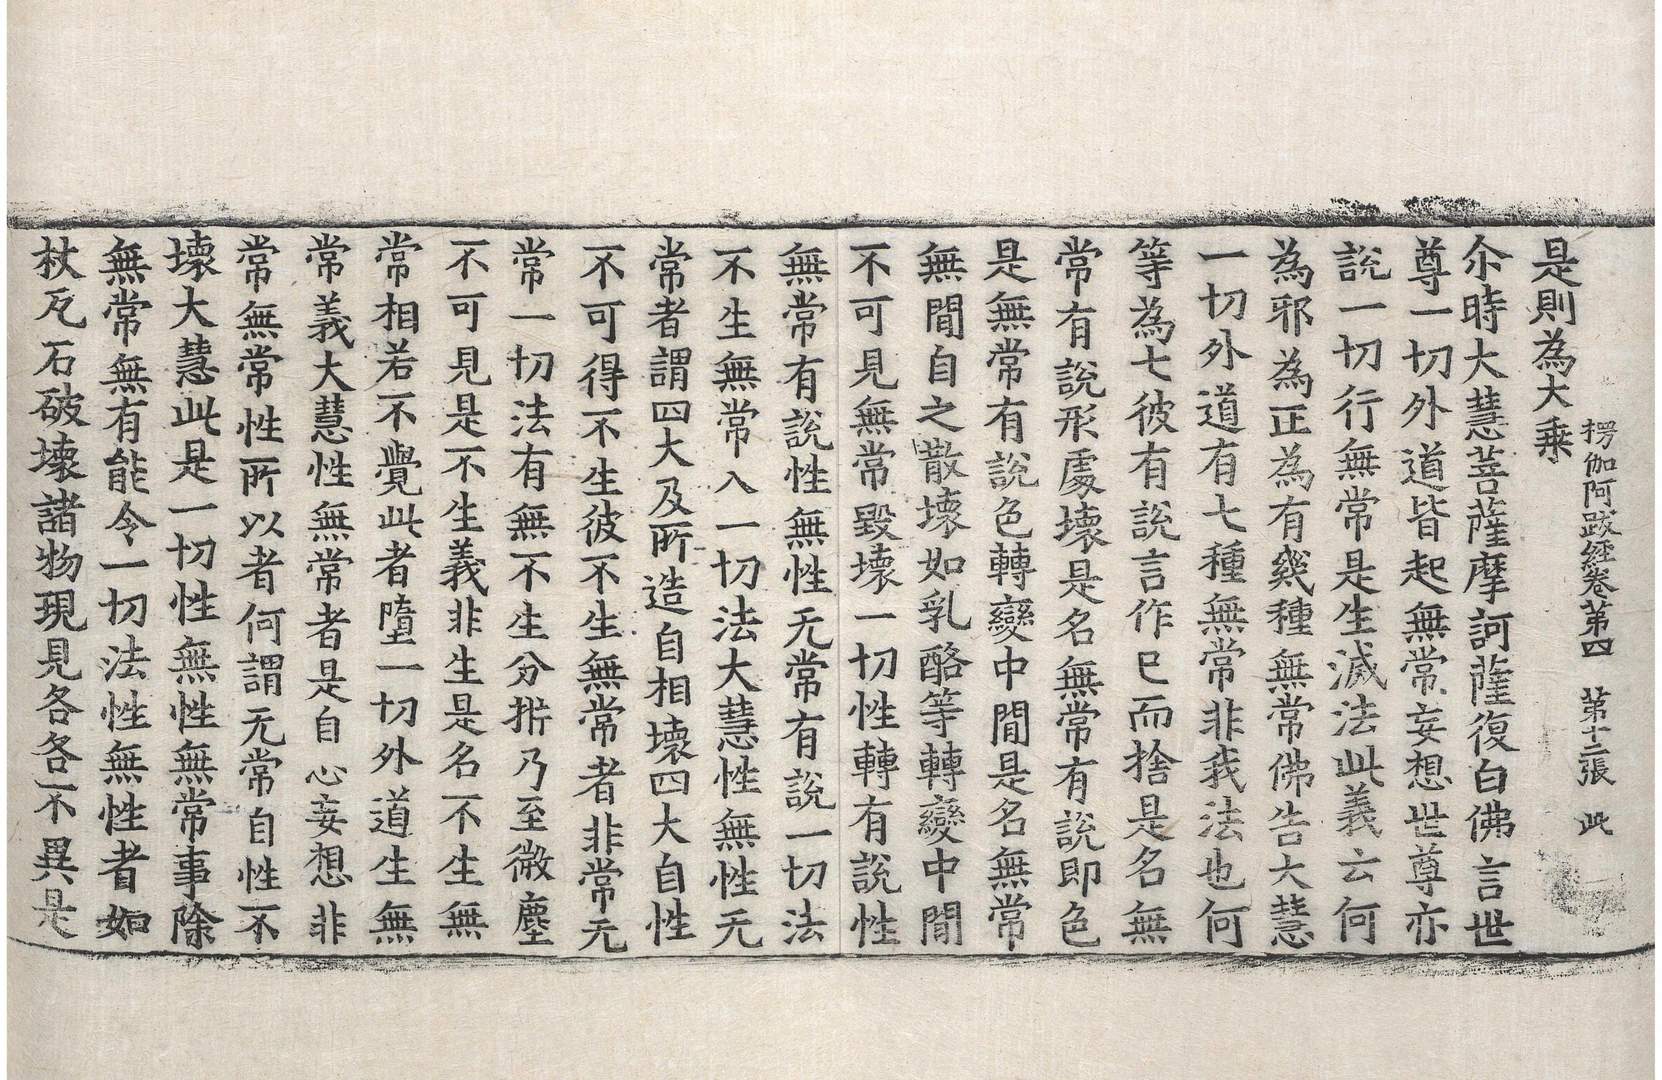 楞伽阿跋經卷第四　第十二張　此
是則為大乘
尒時大慧菩薩摩訶薩復白佛言世
尊一切外道皆起無常妄想世尊亦
說一切行無常是生滅法此義云何
為邪為正為有幾種無常佛告大慧
一切外道有七種無常非我法也何
等為七彼有說言作已而捨是名無
常有說形處壞是名無常有說即色
是無常有說色轉變中間是名無常
無間自之散壞如乳酪等轉變中間
不可見無常毀壞一切性轉有說性
無常有說性無性无常有說一切法
不生無常入一切法大慧性無性无
常者謂四大及所造自相壞四大自性
不可得不生彼不生無常者非常无
常一切法有無不生分㭊乃至微塵
不可見是不生義非生是名不生無
常相若不覺此者墮一切外道生無
常義大慧性無常者是自心妄想非
常無常性所以者何謂无常自性不
壞大慧此是一切性無性無常事除
無常無有能令一切法性無性者如
杖瓦石破壞諸物現見各各不異是